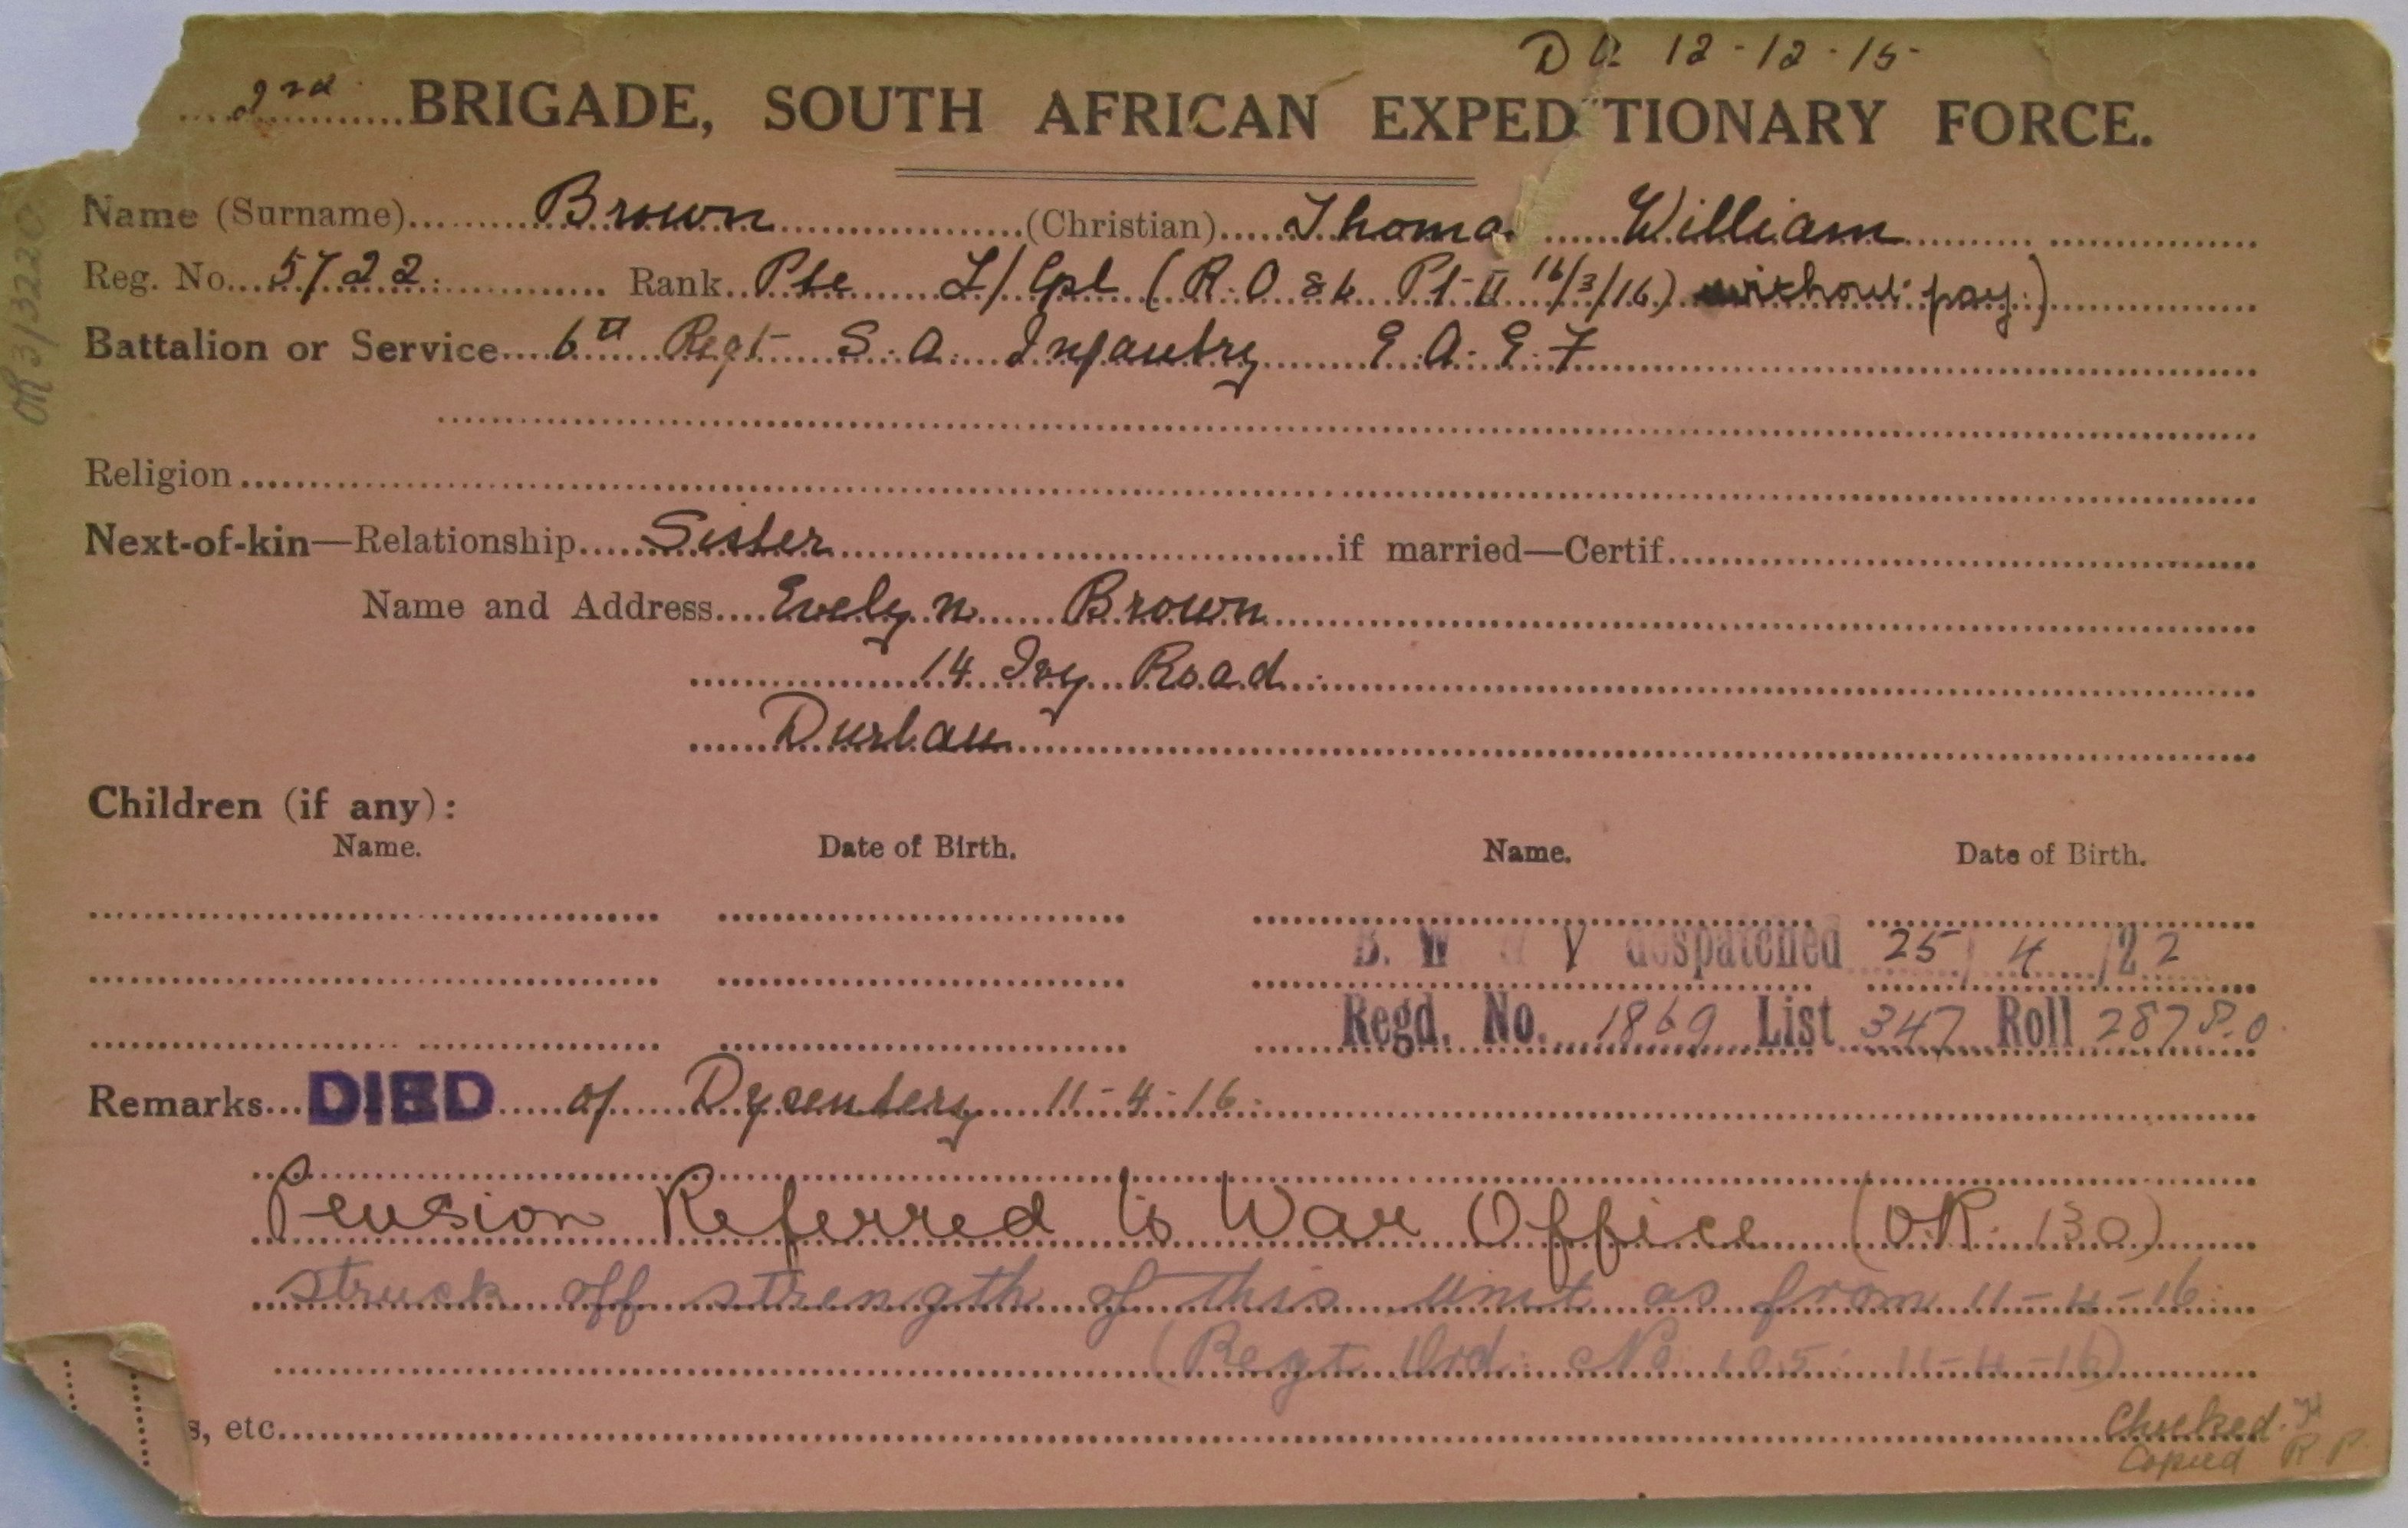 DA 12-12-15
2nd BRIGADE, SOUTH AFRICAN EXPED TIONARY FORCE.
Name (Surname) Brown (Christian) Thoma William
Reg. No. 5722 Rank Pte L/Cpl (R.O 86 Pt II 16/3/16) without pay.)
Battalion or Service 6th Regt S.A. Infantry E.A.E.F
Religion
Next-of-kin—Relationship Sister if married—Certif.
Name and Address Evelyn Brown
14 Ivy Road
Durban
Children (if any):
Name. Date of Birth. Name. Date of Birth.
B. W V despatched 25/4/22
Regd. No. 1869 List 347 Roll 287
Remarks DIED of Dysentery 11-4-16.
Pension Referred to War Office (OR. 130)
Struck off strength of this unit as from 11-4-16.
(Regt Ord: No 105: 11-4-16)
s, etc.
Checked.
Copied R P.
OR 3/3220